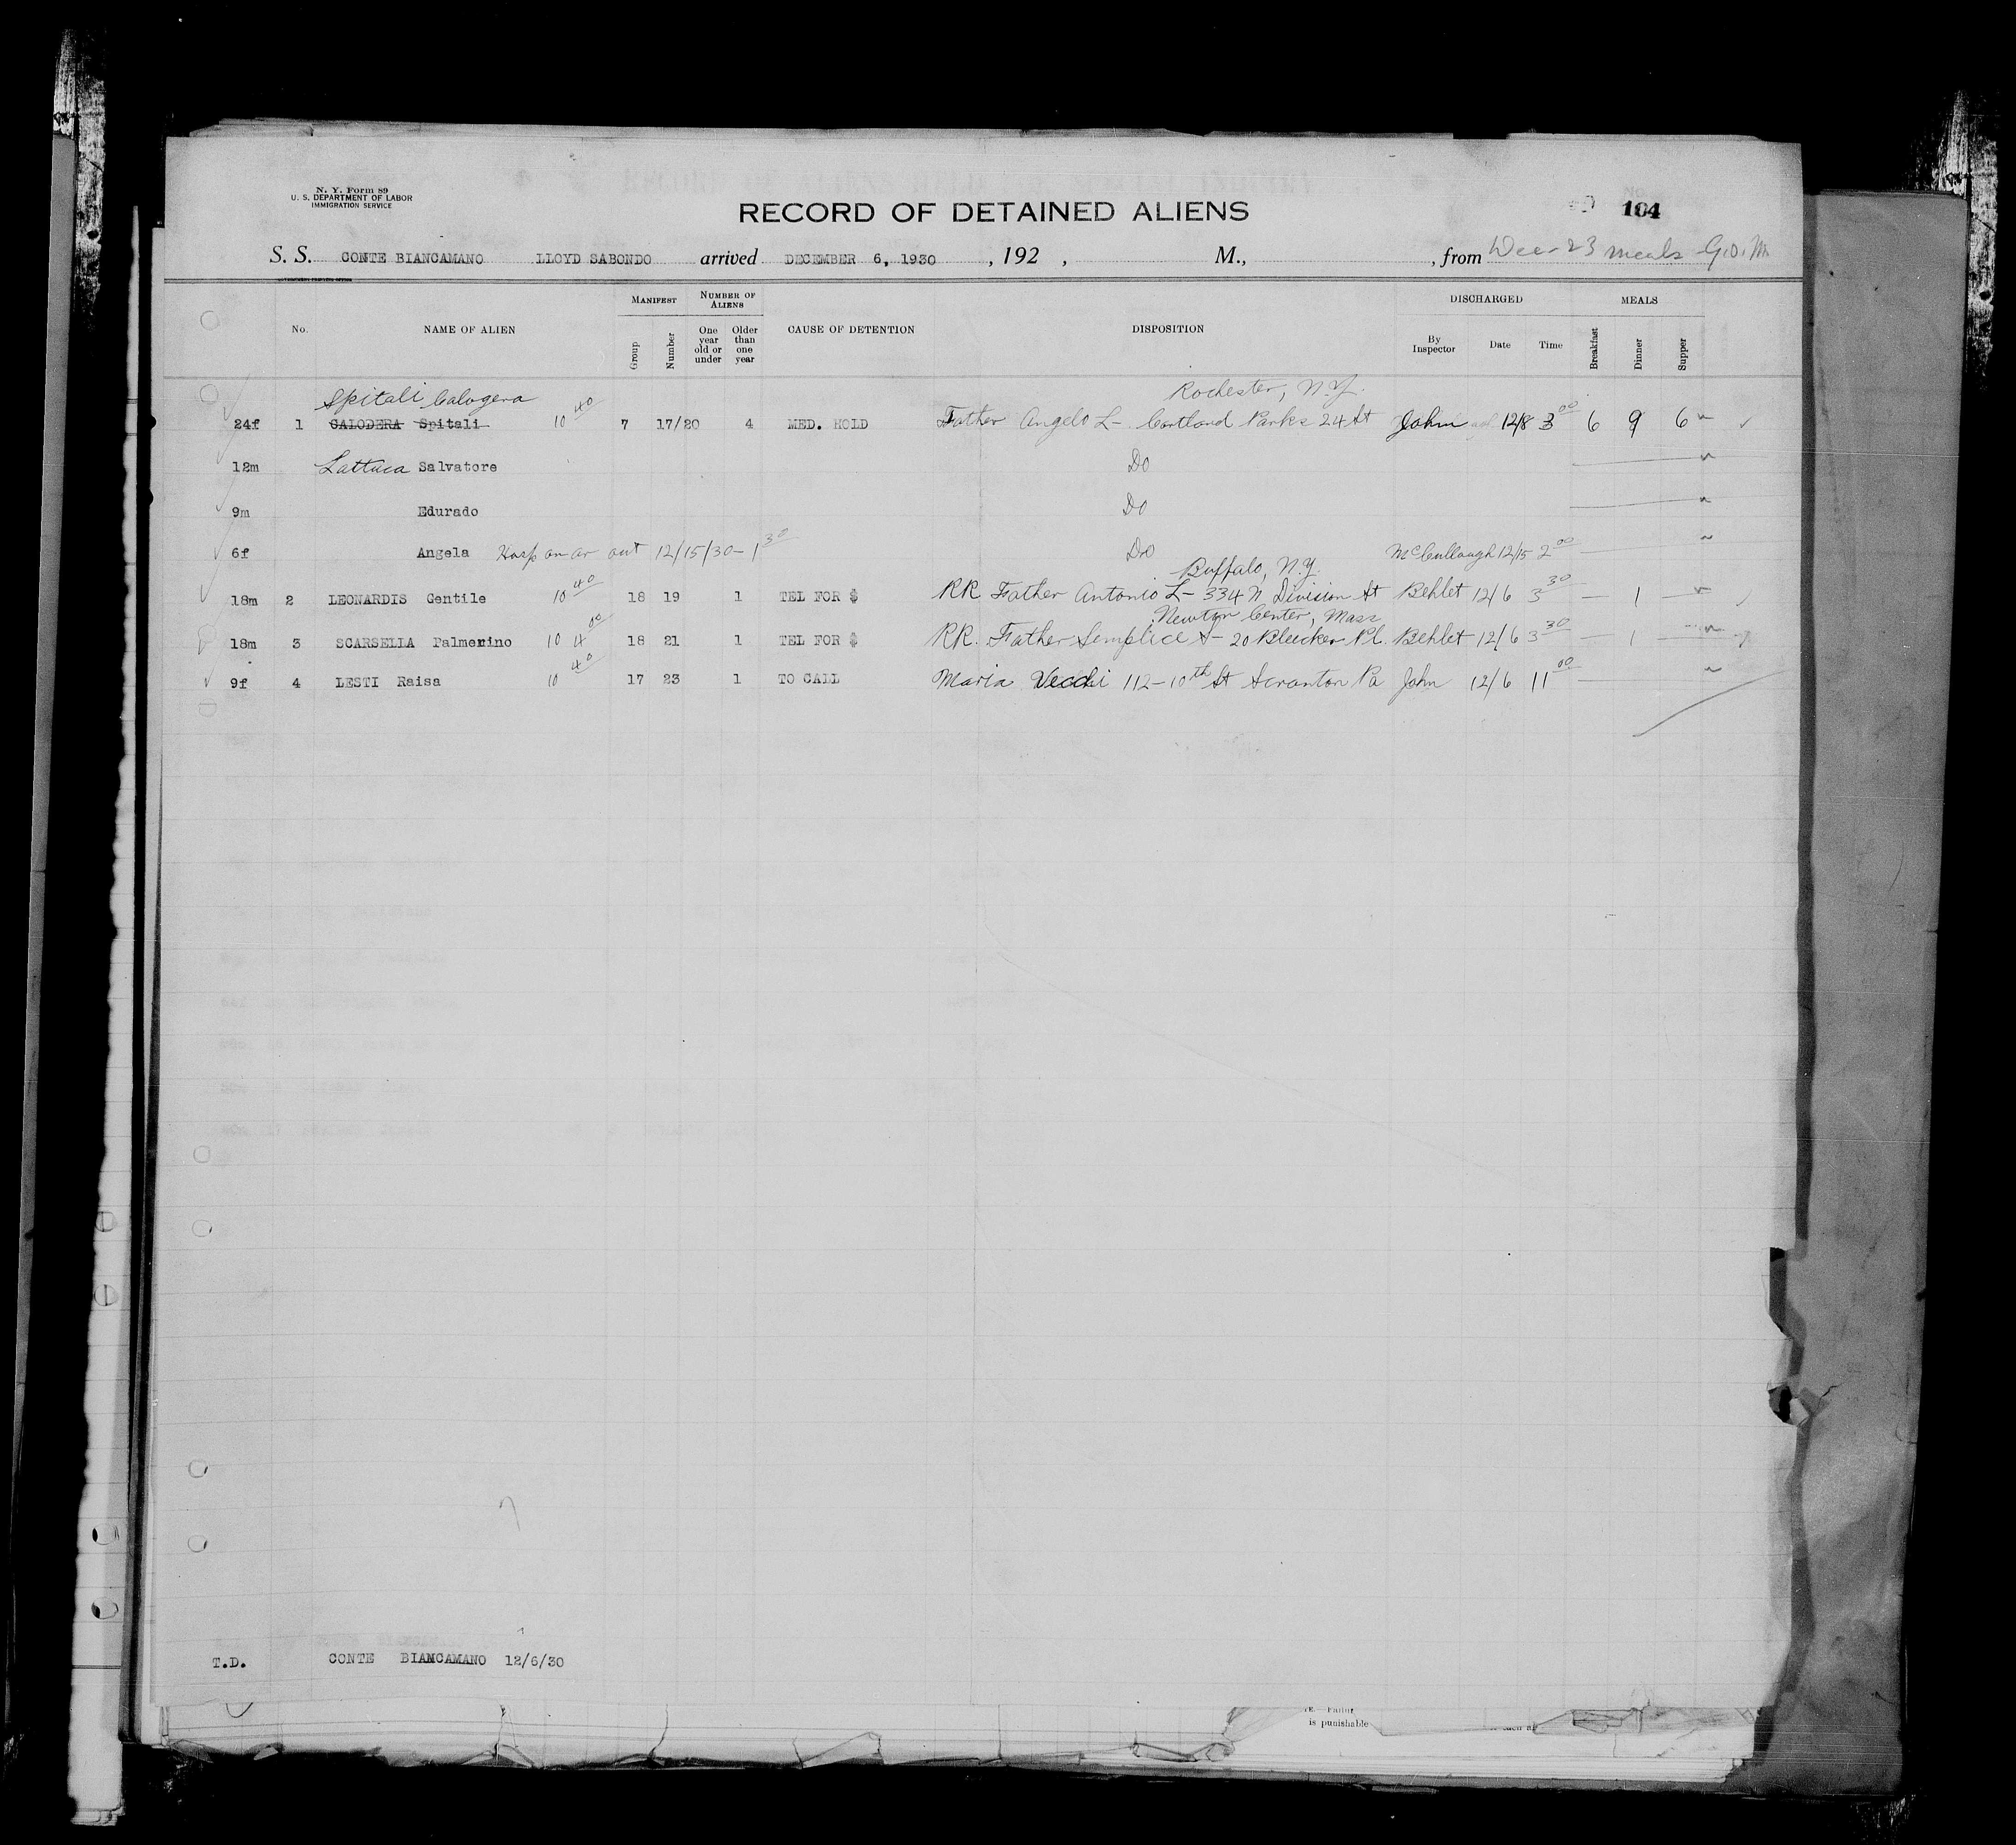 N. Y. Form 89
U. S. DEPARTMENT OF LABOR
IMMIGRATION SERVICE
RECORD OF DETAINED ALIENS
104
S. S. CONTE BIANCAMANO LLOYD SABONDO arrived DECEMBER 6, 1930, 192 , M., , from 23 meals G.O.M
No. NAME OF ALIEN MANIFEST Group Number NUMBER OF ALIENS One year old or under Older than one year CAUSE OF DETENTION DISPOSITION DISCHARGED By Inspector Date Time MEALS Breakfast Dinner Supper
Spitali Calogera Rochester, N.Y.
24f 1 CALODERA Spitali 10 40 7 17/20 4 MED. HOLD Father Angelo L- Cortland Parks 24 St John 12/8 3 00 6 9 6
12m Lattuca Salvatore Do
9m Edurado Do
6f Angela Hosp on ar out 12/15/30 - 1 30 Do McCullough 12/15 2 00
Buffalo, N.Y.
18m 2 LEONARDIS Gentile 10 40 18 19 1 TEL FOR $ RR Father Antonio L- 334 N Division St Behlet 12/6 3 30 — 1 —
Newton Center, Mass
18m 3 SCARSELLA Palmerino 10 4 00 18 21 1 TEL FOR $ RR. Father Semplice S- 20 Bleecker Pl. Behlet 12/6 3 30 — 1 —
9f 4 LESTI Raisa 10 40 17 23 1 TO CALL Maria Vecchi 112-10th St Scranton Pa John 12/6 11 00
T.D. CONTE BIANCAMANO 12/6/30
is punishable